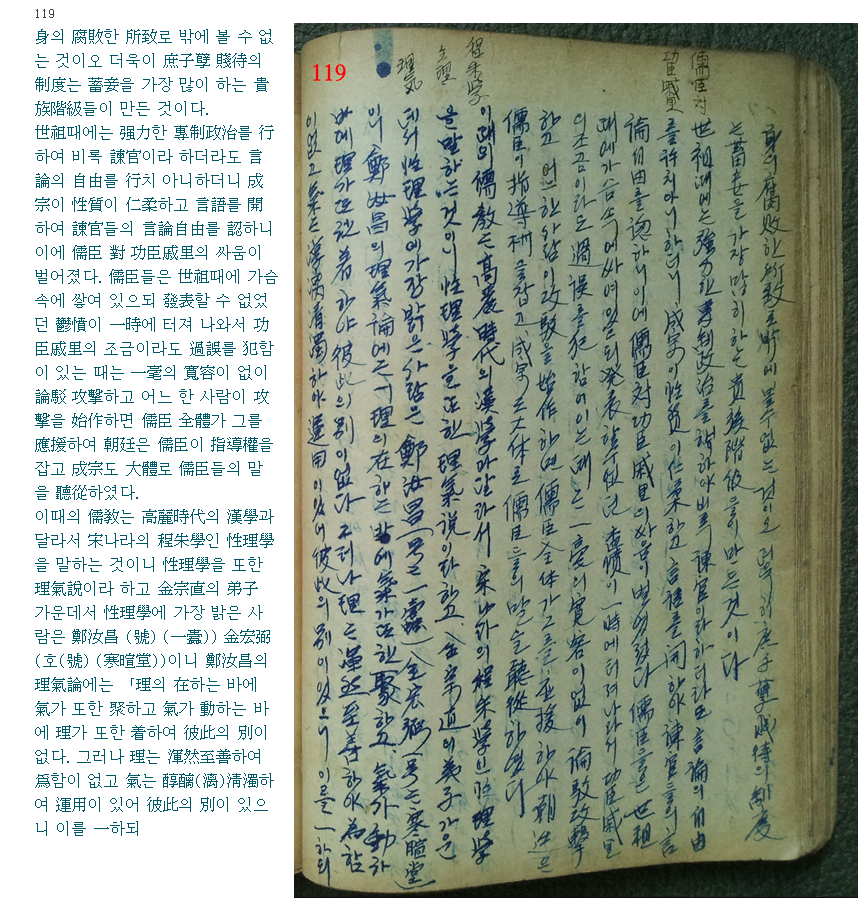 119
身의 腐敗한 所致로 밖에 볼 수 없
는 것이오 더욱이 庶子孽 賤待의
制度는 蓄妾을 가장 많이 하는 貴
族階級들이 만든 것이다.
世祖때에는 强力한 專制政治를 行
하여 비록 諫官이라 하더라도 言
論의 自由를 行치 아니하더니 成
宗이 性質이 仁柔하고 言語를 開
하여 諫官들의 言論自由를 認하니
이에 儒臣 對 功臣戚里의 싸움이
벌어졌다. 儒臣들은 世祖때에 가슴
속에 쌓여 있으되 發表할 수 없었
던 鬱憤이 一時에 터져 나와서 功
臣戚里의 조금이라도 過誤를 犯함
이 있는 때는 一毫의 寬容이 없이
論駁 攻擊하고 어느 한 사람이 攻
擊을 始作하면 儒臣 全體가 그를
應援하여 朝廷은 儒臣이 指導權을
잡고 成宗도 大體로 儒臣들의 말
을 聽從하였다.
이때의 儒敎는 高麗時代의 漢學과
달라서 宋나라의 程朱學인 性理學
을 말하는 것이니 性理學을 또한
理氣說이라 하고 金宗直의 弟子
가운데서 性理學에 가장 밝은 사
람은 鄭汝昌 (號) (一蠹)) 金宏弼
(호(號) (寒暄堂))이니 鄭汝昌의
理氣論에는 「理의 在하는 바에
氣가 또한 聚하고 氣가 動하는 바
에 理가 또한 着하여 彼此의 別이
없다. 그러나 理는 渾然至善하여
爲함이 없고 氣는 醇醨(漓)淸濁하
여 運用이 있어 彼此의 別이 있으
니 이를 一하되
119
儒臣対
功臣戚里
程朱学
主理
理気
身의 腐敗한 所致로 밖에 볼수 없는 것이오 더욱히 庶子孽賤待의 制度
는 蓄妾을 가장 많히 하는 貴族階級들이 만든것이다
世祖때에는 强力한 専制政治를 行하야 비록 諫官이라 하더라도 言論의 自由
를 許치 아니하더니 成宗이 性質이 仁柔하고 言語를 開하야 諫官들의 言
論自由를 認하니 이에 儒臣対功臣戚里의 싸움이 벌어졌다 儒臣들은 世祖
때에 가슴속에 싸여있으되 発表할수없던 欝憤이 一時에 터져나와서 功臣戚里
의 조금이라도 過誤를 犯함이 있는 때는 一毫의 寛容이 없이 論駁攻擊
하고 어느한사람이 攻駁을 始作하면 儒臣全体가 그를 応援하야 朝廷은
儒臣이 指導権을 잡고 成宗도 大体로 儒臣들의 말을 聽從하였다
이때의 儒教는 高麗時代의 漢学과 달라서 宋나라의 程朱学인 性理学
을 말하는것이니 性理学을 또한 理氣說이라 하고 金宗直의 弟子 가운
데서 性理学에 가장 밝은 사람은 鄭汝昌(号는 一蠹) 金宏弼(号는 寒暄堂)
이니 鄭汝昌의 理氣論에는 「理의 在하는 바에 氣가 또한 聚하고 氣가 動하는
바에 理가 또한 着하야 彼此의 別이 없다 그러나 理는 渾然至善하야 為함
이 없고 氣는 清濁하야 運用이 있어 彼此의 別이 있으니 이를 一하되